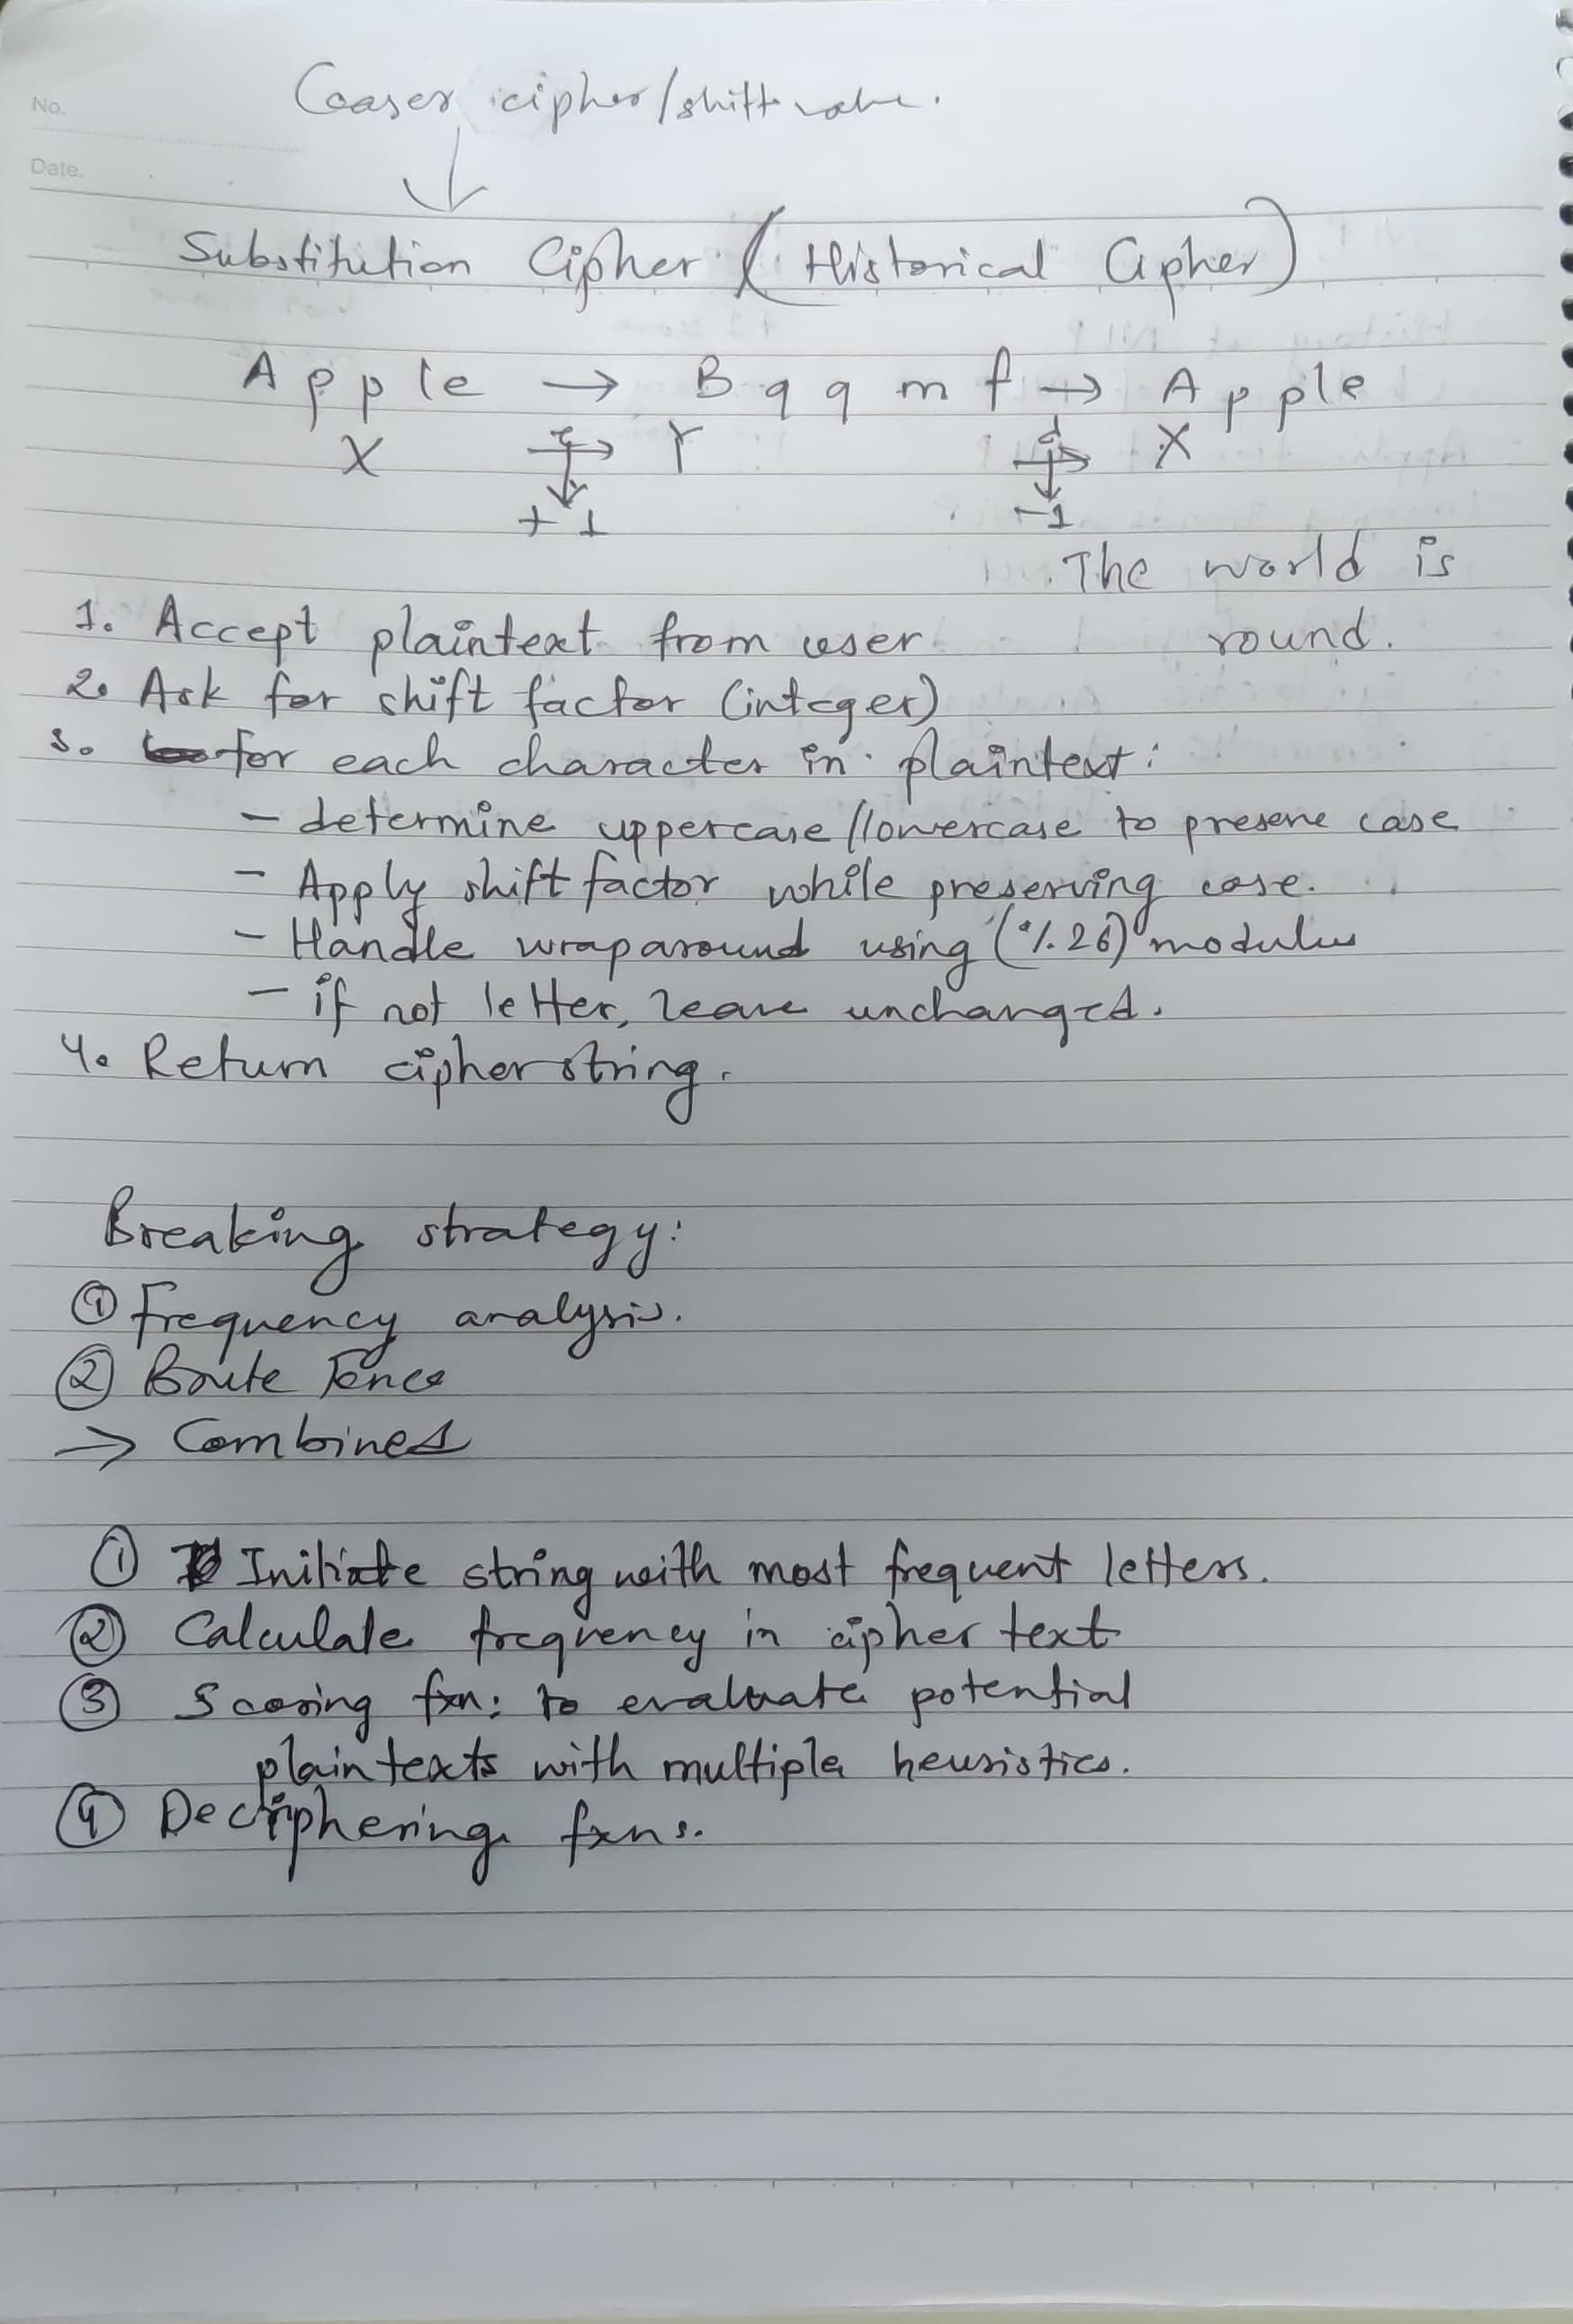 No.
Date.
Ceaser cipher/shift
Substitution Cipher (Historical Cipher)
Apple → Bqqmf → Apple
X e → Y d → X
+1 -1
The world is
1. Accept plaintext from user round.
2. Ask for shift factor (integer)
3. for each character in plaintext:
- determine uppercase/lowercase to preserve case
- Apply shift factor while preserving case.
- Handle wraparound using (% 26) modulus
- if not letter, leave unchanged.
4. Return cipher string.
Breaking strategy:
① Frequency analysis.
② Brute Force
→ Combined
① Initiate string with most frequent letters.
② Calculate frequency in cipher text
③ Scoring fxn: to evaluate potential
plaintexts with multiple heuristics.
④ Deciphering fxns.